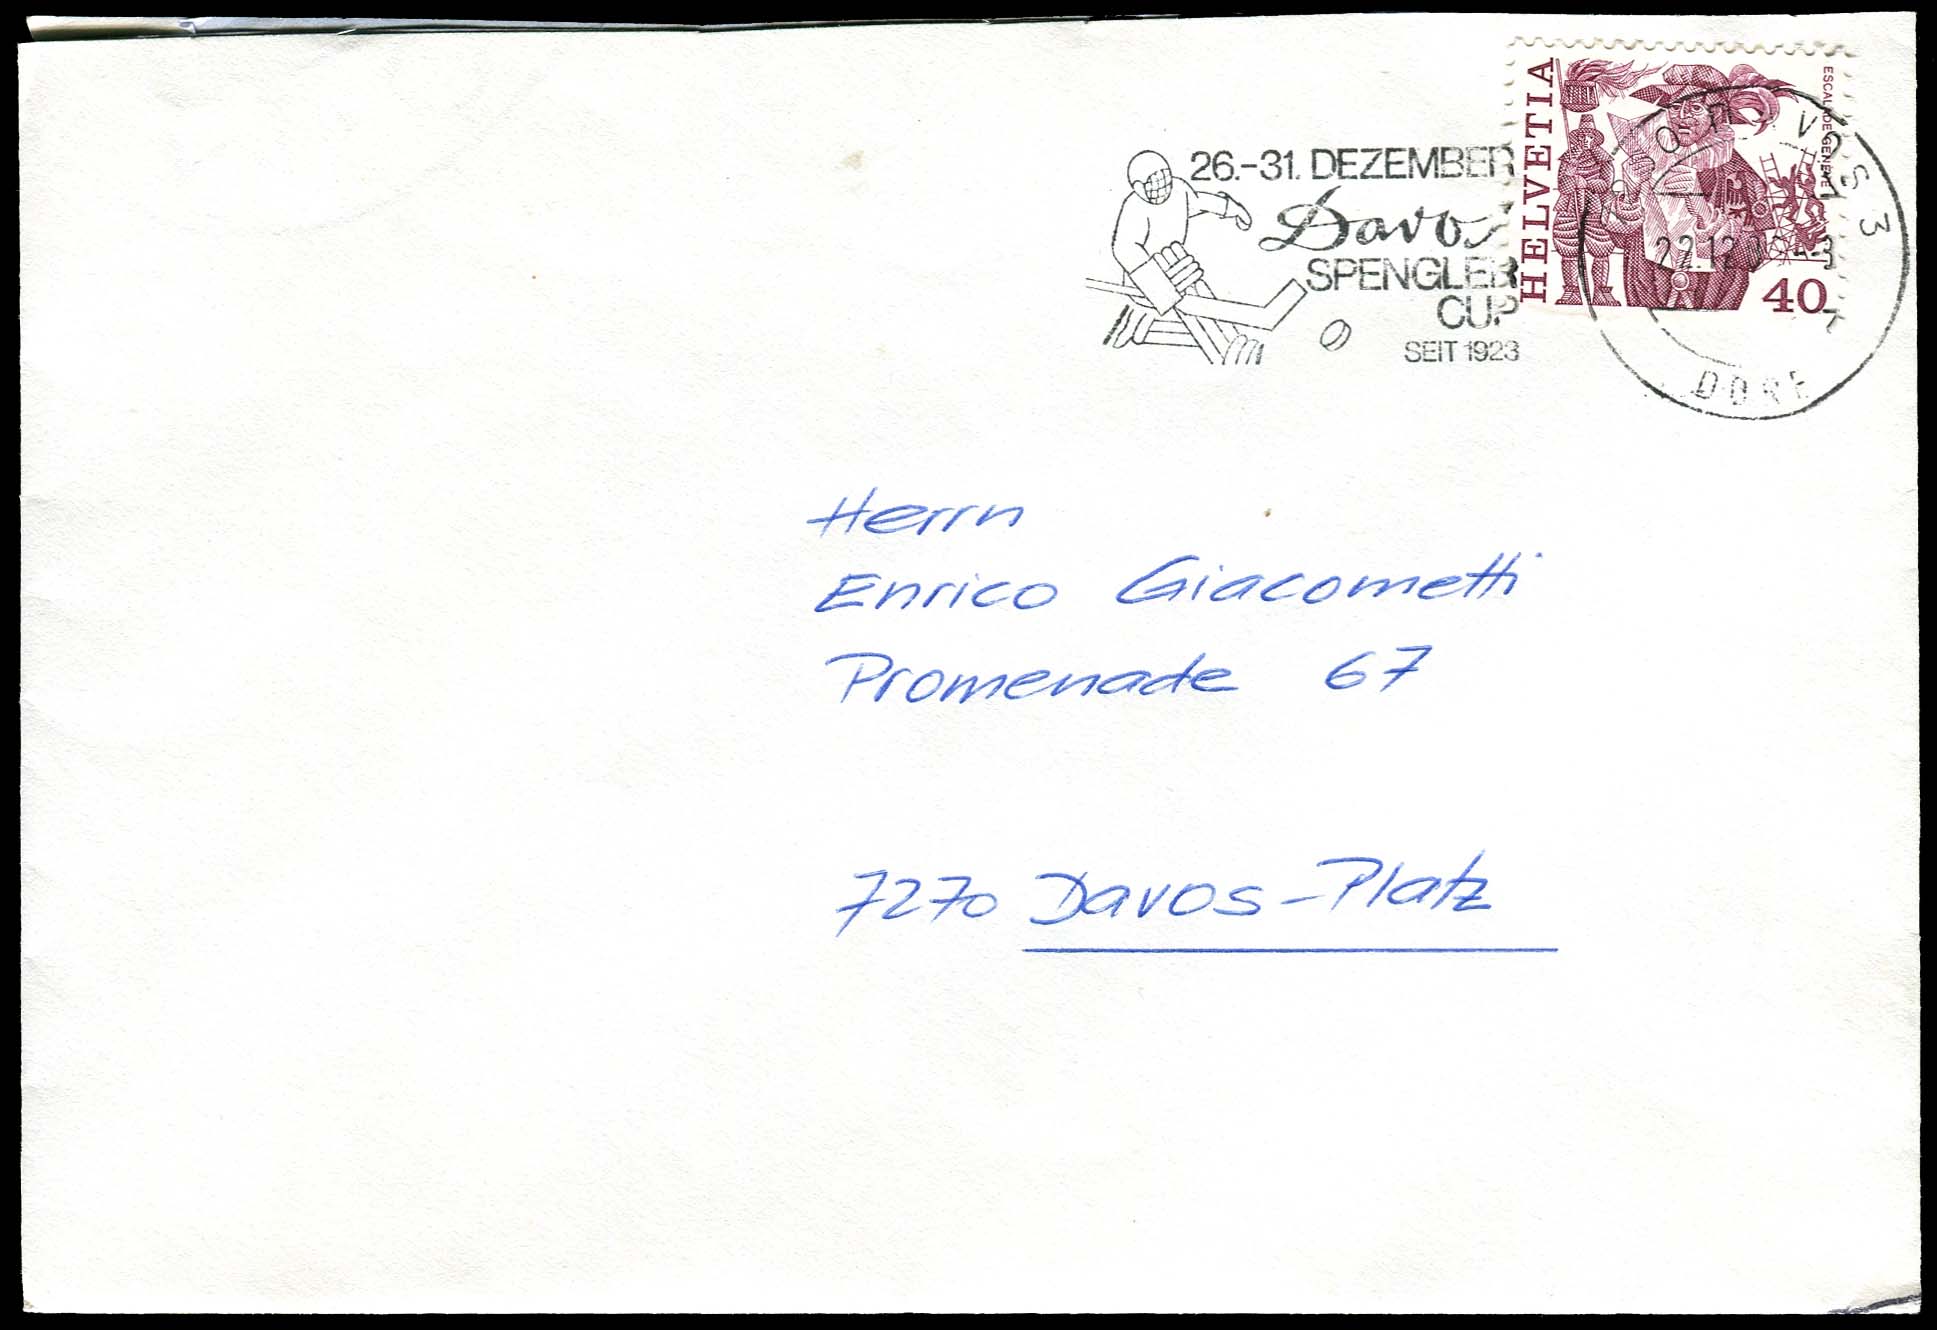 26.-31. DEZEMBER
Davos
SPENGLER
CUP
SEIT 1923
HELVETIA
ESCALADE GENEVE
40
3
22.12
DORF
Herrn
Enrico Giacometti
Promenade 67
7270 Davos-Platz